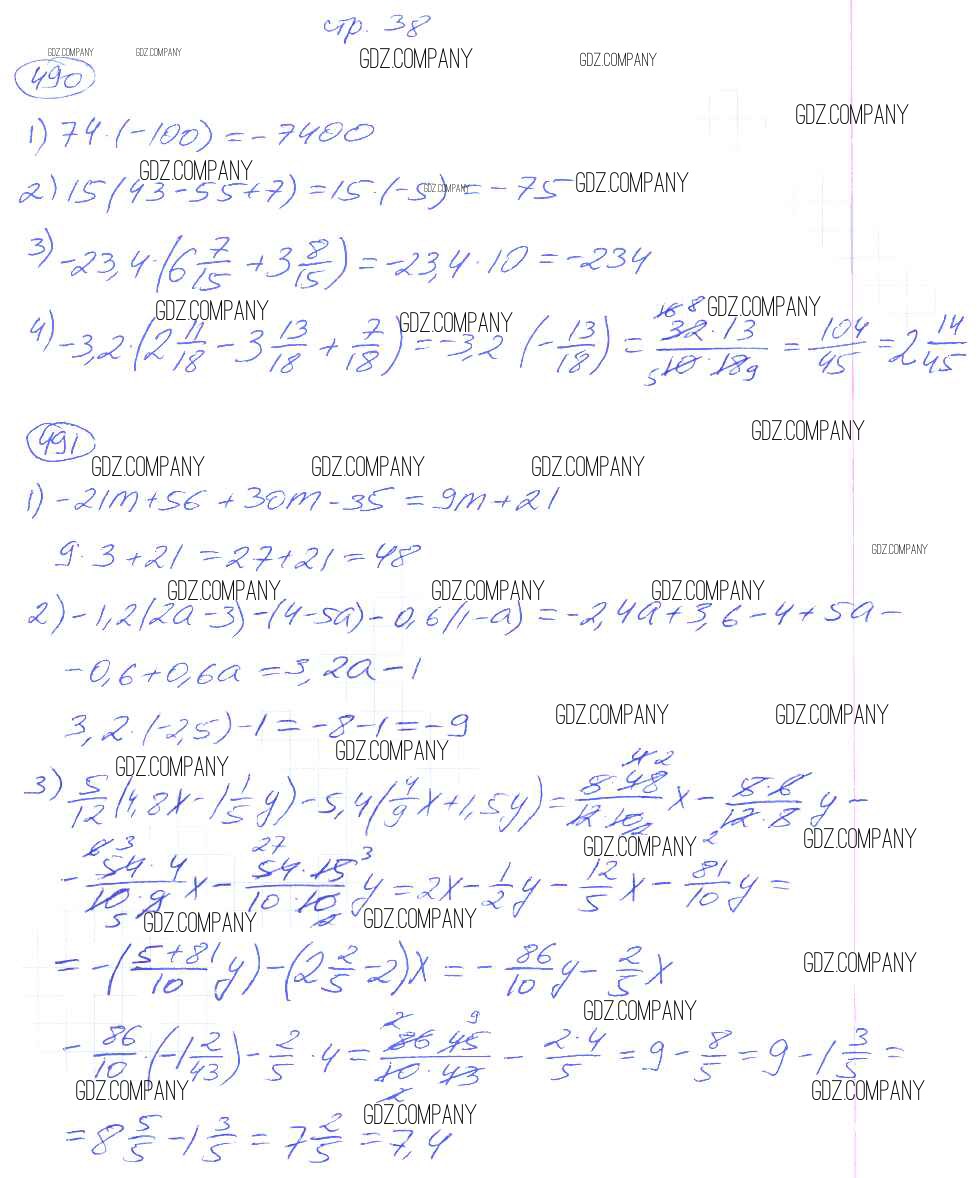 стр. 38
GDZ.COMPANY GDZ.COMPANY GDZ.COMPANY GDZ.COMPANY
490
GDZ.COMPANY
1) 74·(-100) = -7400
GDZ.COMPANY
2) 15(43-55+7) = 15·(-5) = -75
GDZ.COMPANY GDZ.COMPANY
3) -23,4·(6 7/15 + 3 8/15) = -23,4·10 = -234
GDZ.COMPANY GDZ.COMPANY GDZ.COMPANY
4) -3,2·(2 11/18 - 3 13/18 + 7/18) = -3,2 (-13/18) = 32·13/10·18 = 104/45 = 2 14/45
16 8
5 9
GDZ.COMPANY
491
GDZ.COMPANY GDZ.COMPANY GDZ.COMPANY
1) -21m+56+30m-35 = 9m+21
GDZ.COMPANY
9·3+21 = 27+21 = 48
GDZ.COMPANY GDZ.COMPANY GDZ.COMPANY
2) -1,2(2a-3)-(4-5a)-0,6(1-a) = -2,4a+3,6-4+5a-
-0,6+0,6a = 3,2a-1
3,2·(-2,5)-1 = -8-1 = -9
GDZ.COMPANY GDZ.COMPANY
GDZ.COMPANY GDZ.COMPANY
3) 5/12(4,8x - 1 1/5 y) - 5,4(4/9 x + 1,5y) = 5·48/12·10 x - 5·6/12·5 y -
GDZ.COMPANY GDZ.COMPANY
- 54·4/10·9 x - 54·15/10·10 y = 2x - 1/2 y - 12/5 x - 81/10 y =
GDZ.COMPANY GDZ.COMPANY
= -(5+81/10 y) - (2 2/5 - 2)x = - 86/10 y - 2/5 x
GDZ.COMPANY GDZ.COMPANY
- 86/10·(-1 2/43) - 2/5·4 = 86·45/10·43 - 2·4/5 = 9 - 8/5 = 9 - 1 3/5 =
GDZ.COMPANY GDZ.COMPANY GDZ.COMPANY
= 8 5/5 - 1 3/5 = 7 2/5 = 7,4